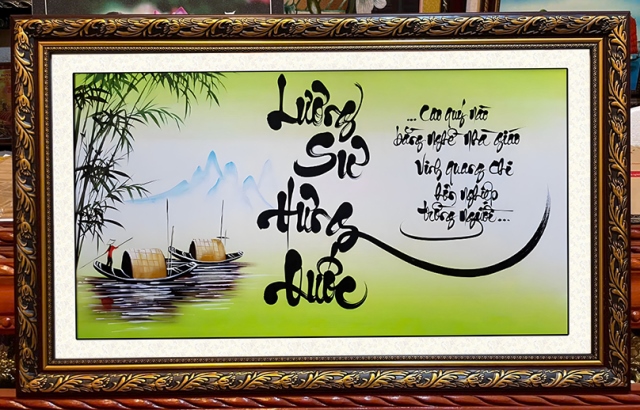 Lương
Sư
Hưng
Quốc
... Cao quý nào
bằng nghề nhà giáo
Vinh quang chi
bền nghiệp
trồng người...